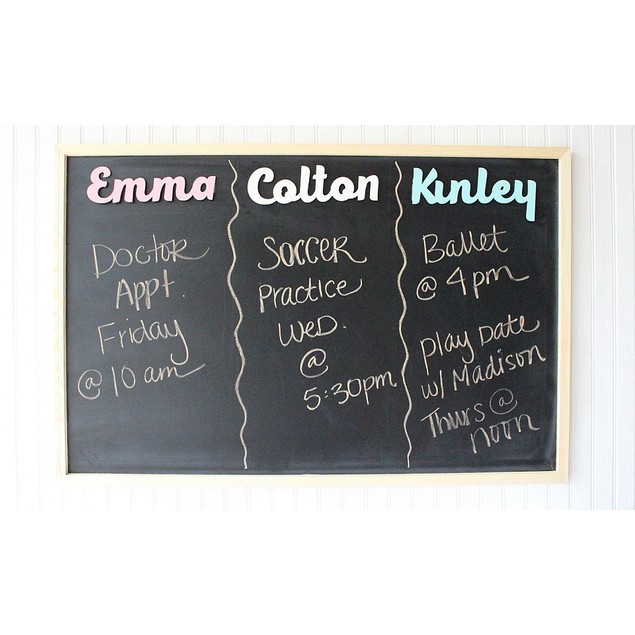 Emma
Doctor
Appt.
Friday
@ 10 am
Colton
Soccer
Practice
Wed.
@
5:30pm
Kinley
Ballet
@ 4pm
Play Date
w/ Madison
Thurs @
noon